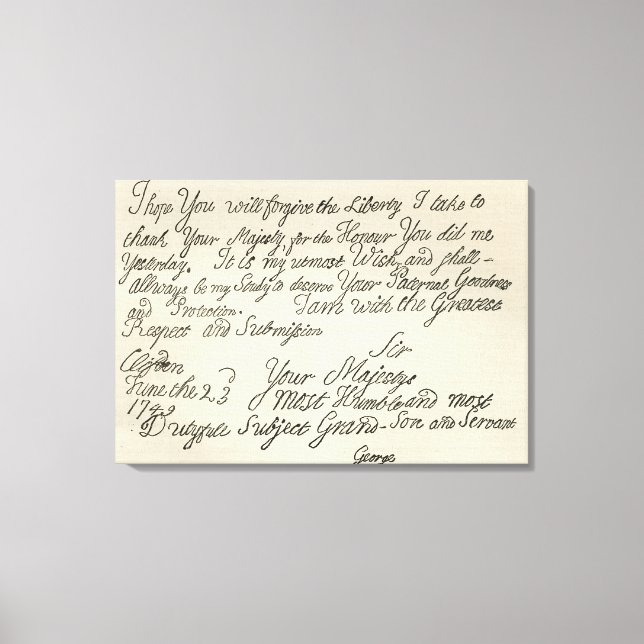 I hope You will forgive the Liberty I take to
thank Your Majesty, for the Honour You did me
Yesterday. It is my utmost Wish, and shall -
allways be my Study to deserve Your Paternal Goodness
and Protection. I am with the Greatest
Respect and Submission
Sir
Clifden Your Majestys
June the 23d most Humble and most
1749 Dutyfull Subject Grand-Son and Servant
George